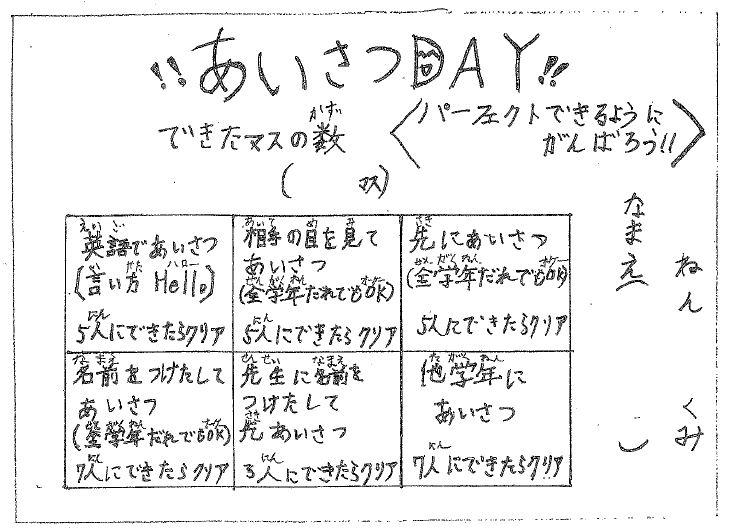 !!あいさつDAY!!
できたマスの数
かず
(　　マス)
パーフェクトできるように
がんばろう!!
ねん　くみ
なまえ(　　)
えいご
英語であいさつ
かた ハロー
(言い方 Hello)
にん
5人にできたらクリア
あいて め み
相手の目を見て
あいさつ
ぜんがくねん オッケー
(全学年だれでもOK)
にん
5人にできたらクリア
さき
先にあいさつ
ぜんがくねん オッケー
(全学年だれでもOK)
5人にできたらクリア
なまえ
名前をつけたして
あいさつ
(全学年だれでもOK)
にん
7人にできたらクリア
せんせい なまえ
先生に名前を
つけたして
さき
先あいさつ
にん
3人にできたらクリア
たがくねん
他学年に
あいさつ
にん
7人にできたらクリア